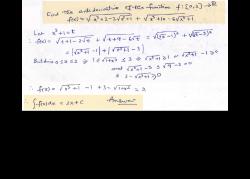 Find the antiderivative of the function f:[0,2]→R
f(x) = √(x²+2-2√(x²+1)) + √(x²+10-6√(x²+1))
Let x²+1=t
∴ f(x) = √(t+1-2√t) + √(t+9-6√t) = √(√t-1)² + √(√t-3)²
= |√(x²+1) -1| + |√(x²+1) -3|
0≤x≤2 ⇒ 1≤√(1+x²)≤3 ⇒ √(x²+1)≥1 or √(x²+1) -1≥0
and √(x²+1) -3 ≤ √9 -3=0
3-√(x²+1) ≥0
∴ f(x) = √(x²+1) -1 +3-√(1+x²) = 2
∴ ∫f(x)dx = 2x+C Answer